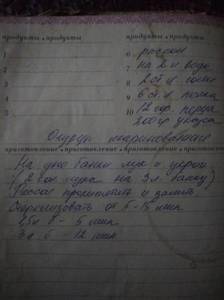 продукты • продукты
продукты • продукты
1
2
3
4
5
6 рассол
7 на 2 л воды
8 2 ст. л. соли
9 6 ст. л.
10 12 гор. перца
200 гр уксуса
Огурцы маринованные
приготовление • приготовление • приготовление • приготовление
На дно банки лук и укроп
(2 на 3 л банку)
Рассол прокипятить и залить
Стерилизовать от 5-15 мин
1,5 л 8 - 5 мин.
3 л. 6 - 12 мин